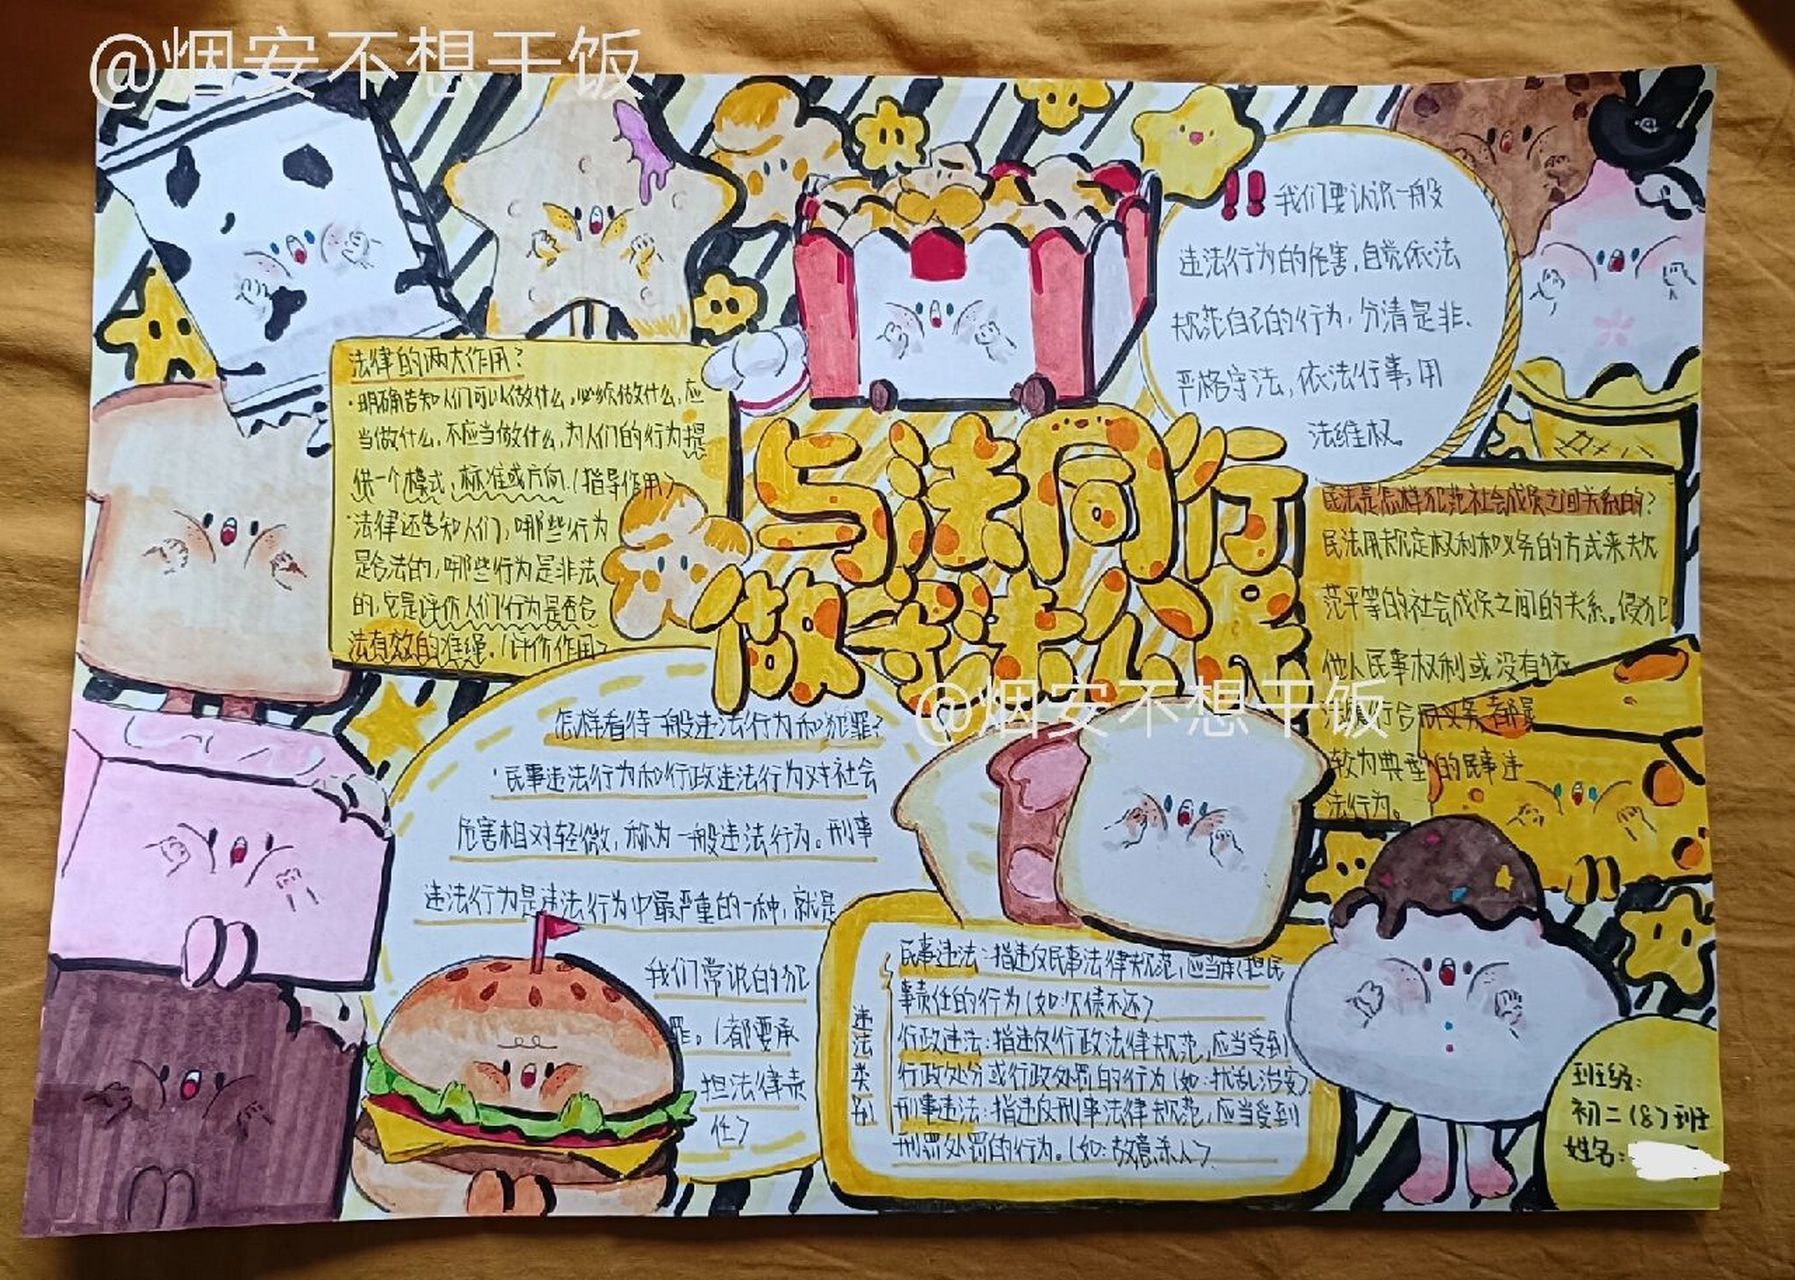 @烟安不想干饭
与法同行
做守法公民
法律的两大作用？
·明确告知人们可以做什么，必须做什么，应
当做什么，不应当做什么，为人们的行为提
供一个模式，标准或方向。（指导作用）
·法律还告知人们，哪些行为
是合法的，哪些行为是非法
的，它是评价人们行为是否合
法有效的准绳。（评价作用）
‼我们要认识一般
违法行为的危害，自觉依法
规范自己的行为，分清是非、
严格守法，依法行事，用
法维权。
民法是怎样规范社会成员之间关系的？
民法用规定权利和义务的方式来规
范平等的社会成员之间的关系。侵犯
他人民事权利或没有依
法履行合同义务都是
较为典型的民事违
法行为。
@烟安不想干饭
怎样看待一般违法行为和犯罪？
·民事违法行为和行政违法行为对社会
危害相对轻微，称为一般违法行为。刑事
违法行为是违法行为中最严重的一种，就是
我们常说的犯
罪。（都要承
担法律责
任）
违法类别
民事违法：指违反民事法律规范，应当承担民
事责任的行为（如：欠债不还）
行政违法：指违反行政法律规范，应当受到
行政处分或行政处罚的行为（如：扰乱治安）
刑事违法：指违反刑事法律规范，应当受到
刑罚处罚的行为。（如：故意杀人）
班级：
初二（8）班
姓名：